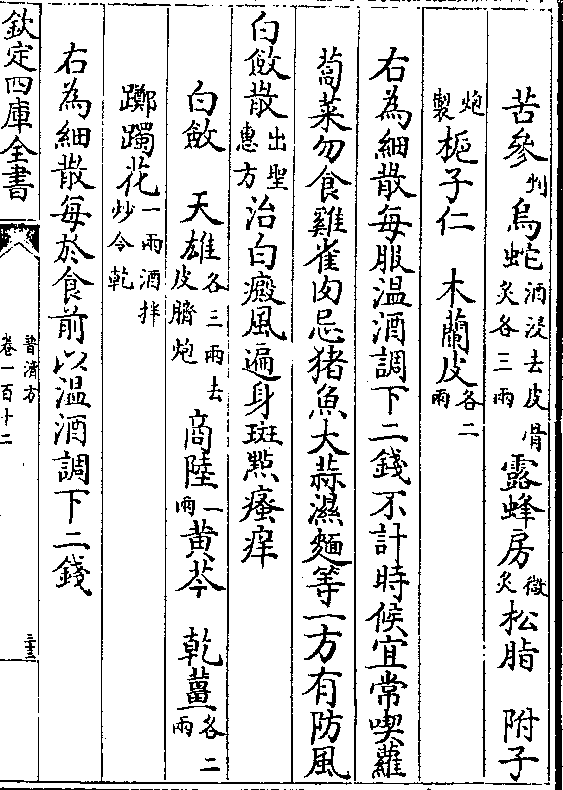 苦參剉烏蛇酒浸去皮骨炙各三兩露蜂房微炙松脂 附子
炮製梔子仁 木蘭皮各二兩
右為細散每服温酒調下二錢不計時候宜常喫蘿
蔔菜勿食雞雀肉忌猪魚大蒜濕麵等一方有防風
白斂散出聖惠方治白癜風遍身斑㸃瘙痒
白斂 天雄各三兩去皮臍炮商陸一兩黄芩 乾薑各二兩
躑躅花一兩酒拌炒令乾
右為細散每於食前以温酒調下二錢
欽定四庫全書
普濟方
卷一百十二